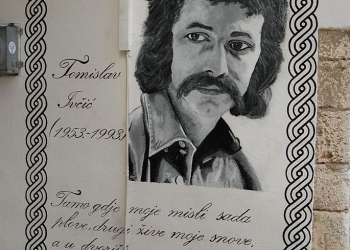 Tomislav
Ivčić
(1953-1993)
Tamo gdje moje misli sada
plove, drugi žive moje snove,
a u dvorištu